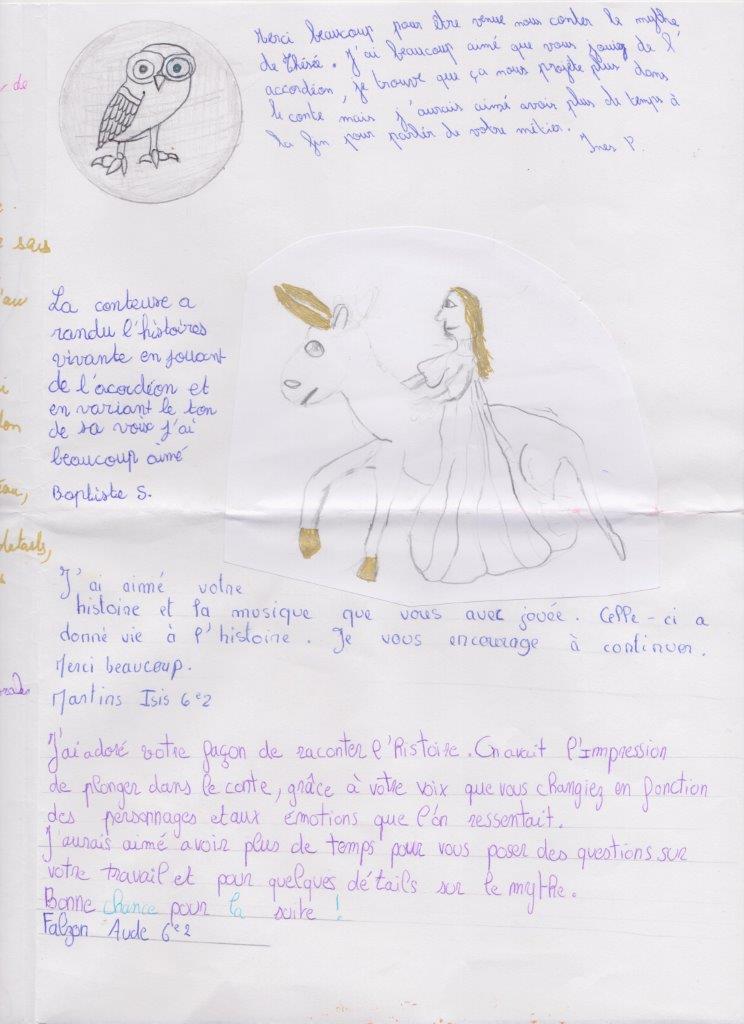 Merci beaucoup pour être venue nous conter le mythe
de Thésé. J'ai beaucoup aimé que vous jouiez de l'
accordéon, je trouve que ça nous projète plus dans
le conte, mais j'aurais aimé avoir plus de temps à
la fin pour parler de votre métier.
Ines P.
La conteuse a
randu l'histoires
vivante en jouant
de l'acordéon et
en variant le ton
de sa voix j'ai
beaucoup aimé
Baptiste S.
J'ai aimé votre
histoire et la musique que vous avec jouée. Celle-ci a
donné vie à l'histoire. Je vous encourage à continuer.
Merci beaucoup.
Martins Isis 6e2
J'ai adoré votre façon de raconter l'histoire. On avait l'impression
de plonger dans le conte, grâce à votre voix que vous changiez en fonction
des personnages et aux émotions que l'on ressentait.
J'aurais aimé avoir plus de temps pour vous poser des questions sur
votre travail et pour quelques détails sur le mythe.
Bonne chance pour la suite !
Falzon Aude 6e2
de
sais
détails,